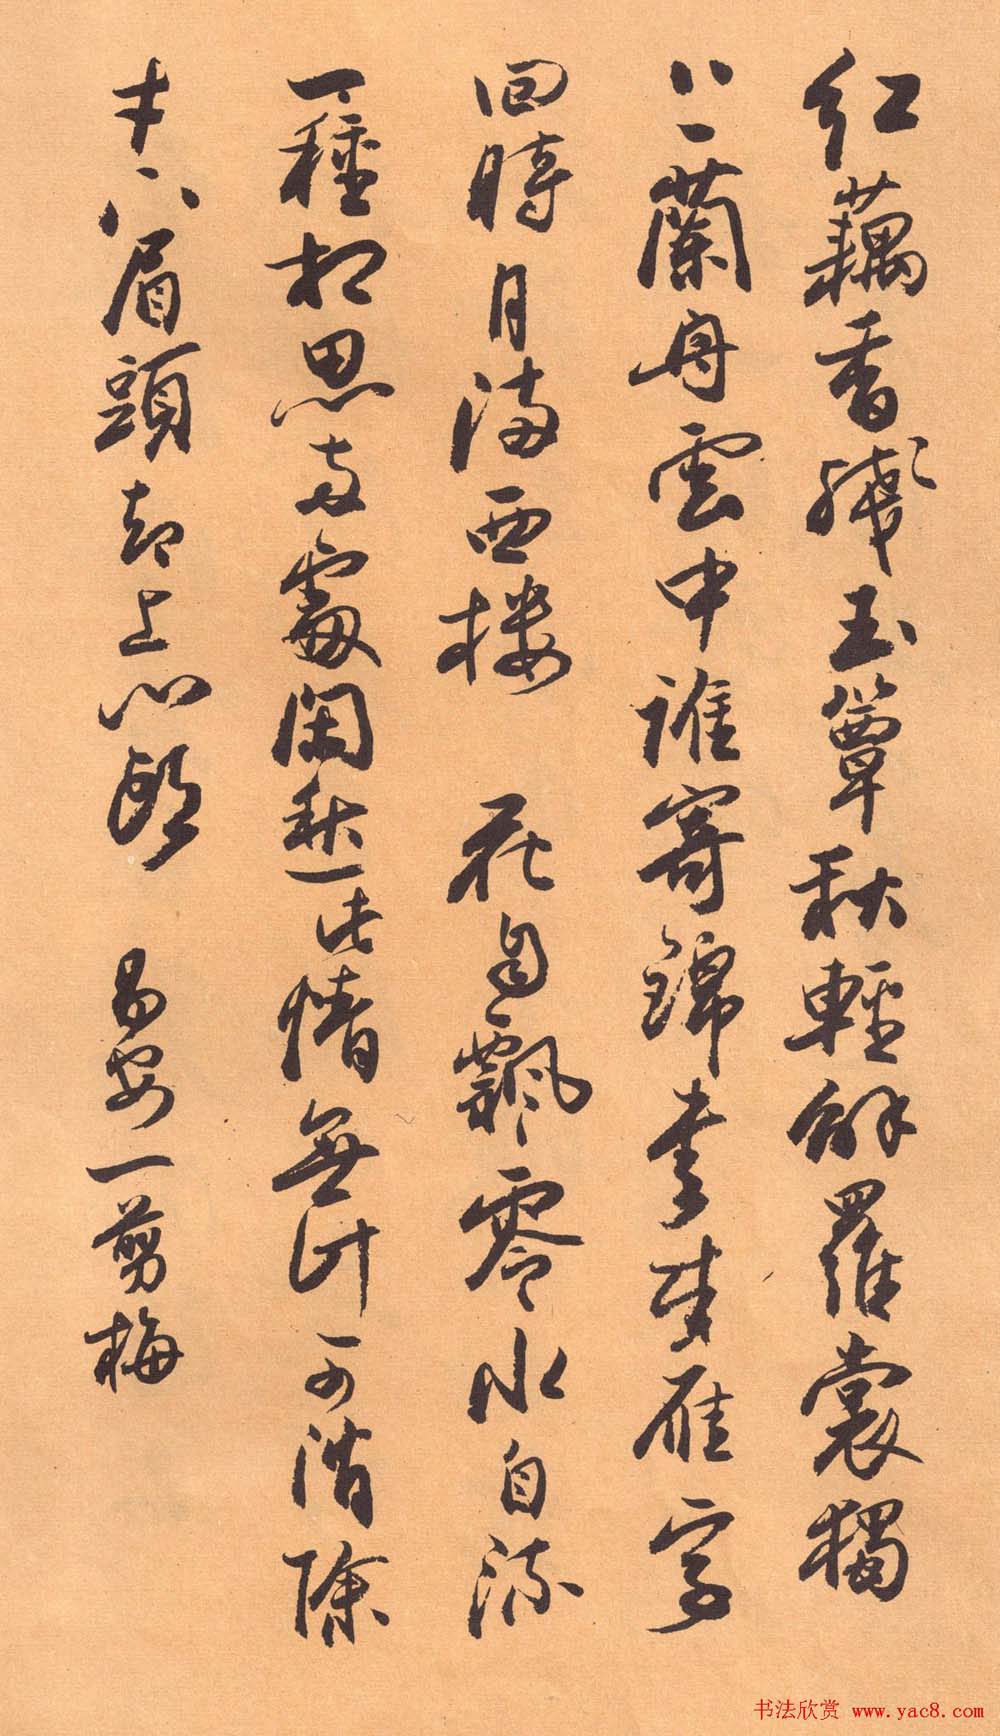 红藕香残玉簟秋輕解羅裳獨
上蘭舟雲中誰寄錦書來雁字
回時月滿西楼 花自飄零水自流
一種相思两處閑愁此情無計可消除
才下眉頭却上心頭 易安一剪梅
书法欣赏 www.yac8.com